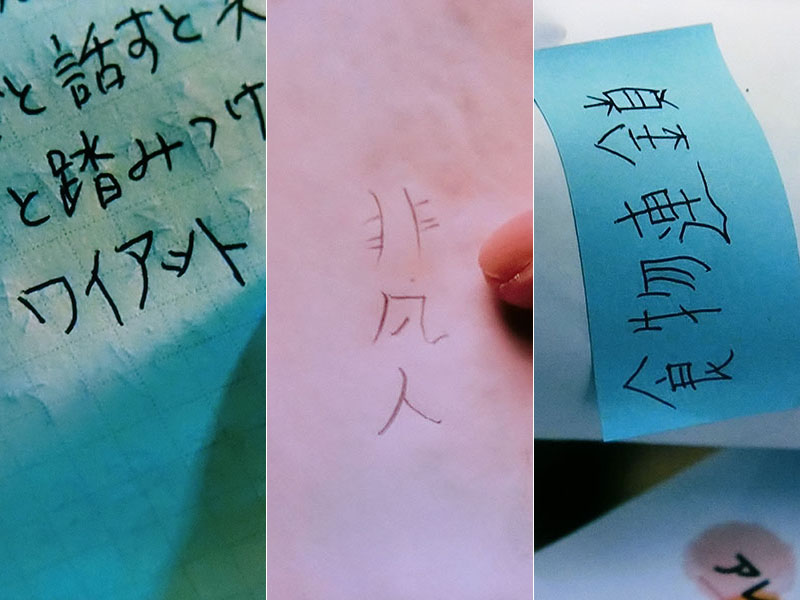 と話すと
と踏みつけ
ワイアット
非凡人
食物連鎖
アレ